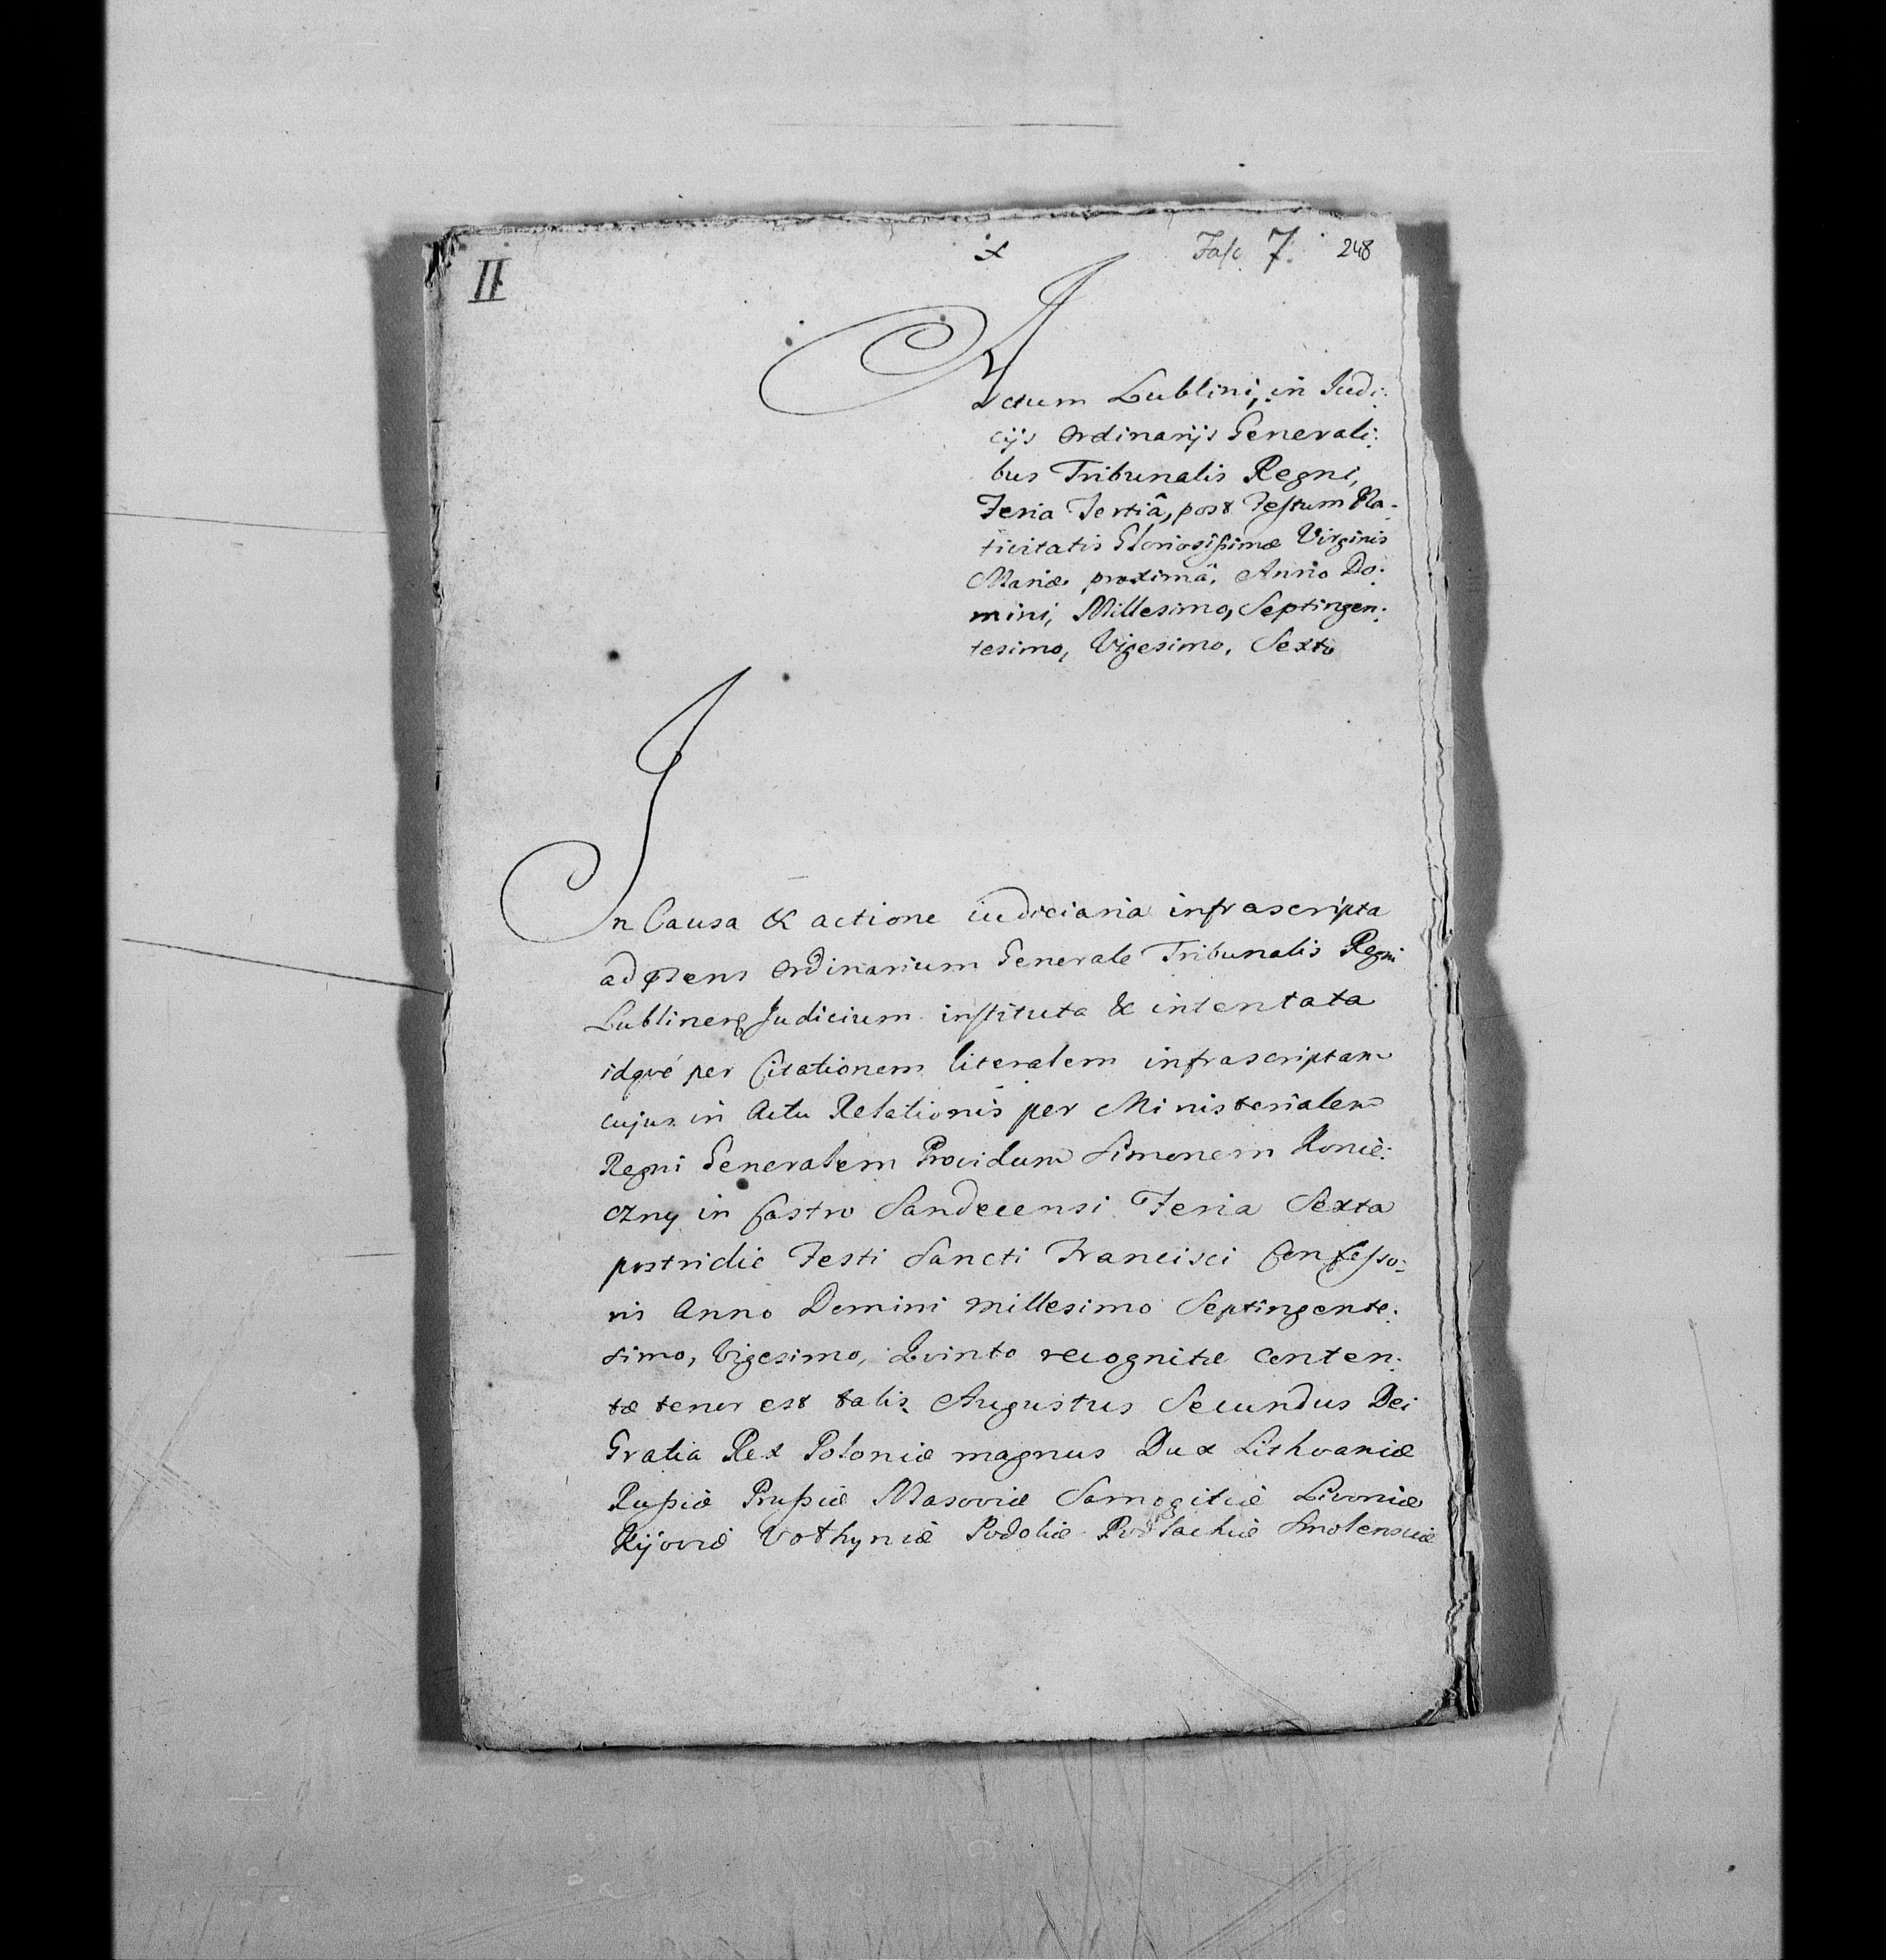 II
x
Fasc. 7. 248
Actum Lublini, in Judi:
cijs Ordinarijs Generali:
bus Tribunalis Regni,
Feria Tertiâ, post Festum Na-
tivitatis Gloriosissimæ Virginis
Mariæ proximâ, Anno Do:
mini, Millesimo, Septingen:
tesimo, Vigesimo, Sexto
In Causa & actione iudiciaria infrascripta
ad præns Ordinarium Generale Tribunalis Regni
Lublinen Judicium instituta & intentata
idqve per Citationem literalem infrascriptam
cujus in Actu Relationis per Ministerialem
Regni Generalem Providum Simonem Konie:
czny in Castro Sandecensi Feria Sexta
postridie Festi Sancti Francisci Confesso:
ris Anno Domini millesimo Septingente:
simo, Vigesimo, Qvinto recognitæ conten:
tæ tenor est talis Augustus Secundus Dei
Gratia Rex Poloniæ magnus Dux Lithvaniæ
Russiæ Prussiæ Masoviæ Samogitiæ Livoniæ
Kijoviæ Volhyniæ Podoliæ Podlachiæ Smolensciæ